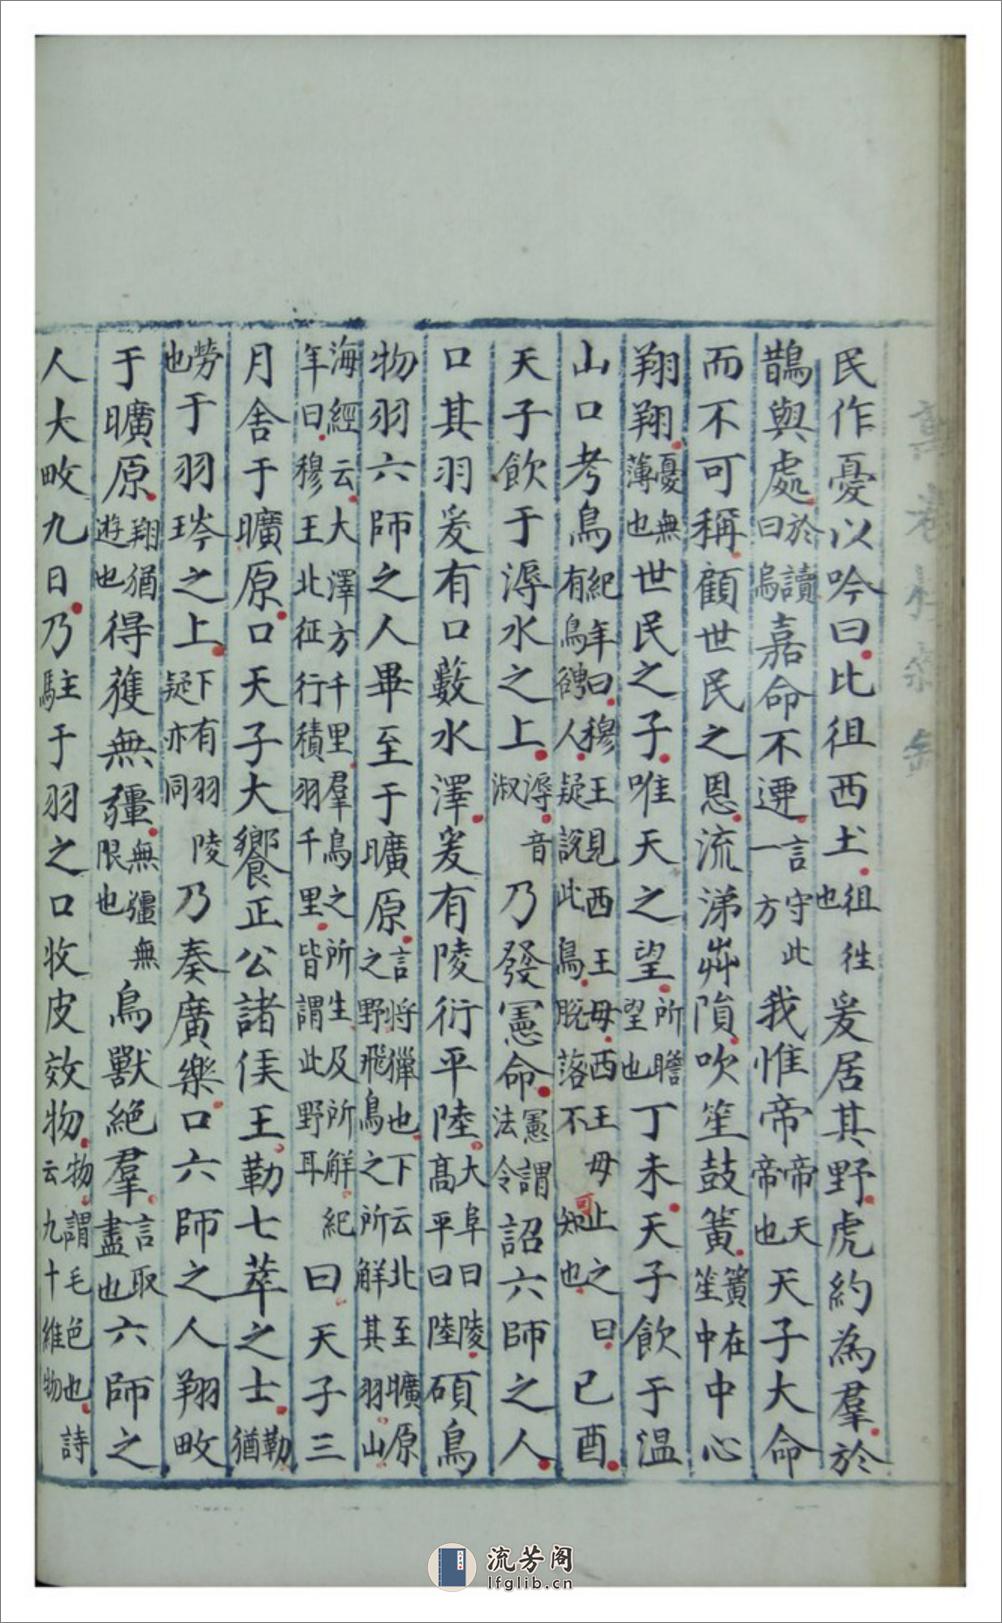 民作憂以吟曰比徂西土徂徃也爰居其野虎約為羣於
鵲與處於讀曰烏嘉命不遷言守此一方我惟帝帝天帝也天子大命
而不可稱顧世民之恩流涕芔隕吹笙鼓簧簧在笙中中心
翔翔憂無薄也世民之子唯天之望所瞻望也丁未天子飲于温
山口考鳥紀年曰穆王見西王母西王母止之曰有鳥䧹人疑說此鳥脫落不可知也己酉
天子飲于溽水之上溽音淑乃發憲命憲謂法令詔六師之人
口其羽爰有口藪水澤爰有陵衍平陸大阜曰陵高平曰陸碩鳥
物羽六師之人畢至于曠原言將獵也下云北至曠原之野飛鳥之所解其羽山
海經云大澤方千里羣鳥之所生及所解紀年曰穆王北征行積羽千里皆謂此野耳曰天子三
月舍于曠原口天子大饗正公諸侯王勒七萃之士勒猶
勞也于羽琌之上下有羽陵疑亦同乃奏廣樂口六師之人翔畋
于曠原翔猶遊也得獲無疆無疆無限也鳥獸絕羣言取盡也六師之
人大畋九日乃駐于羽之口收皮效物物謂毛色也詩云九十維物
流芳阁
lfglib.cn